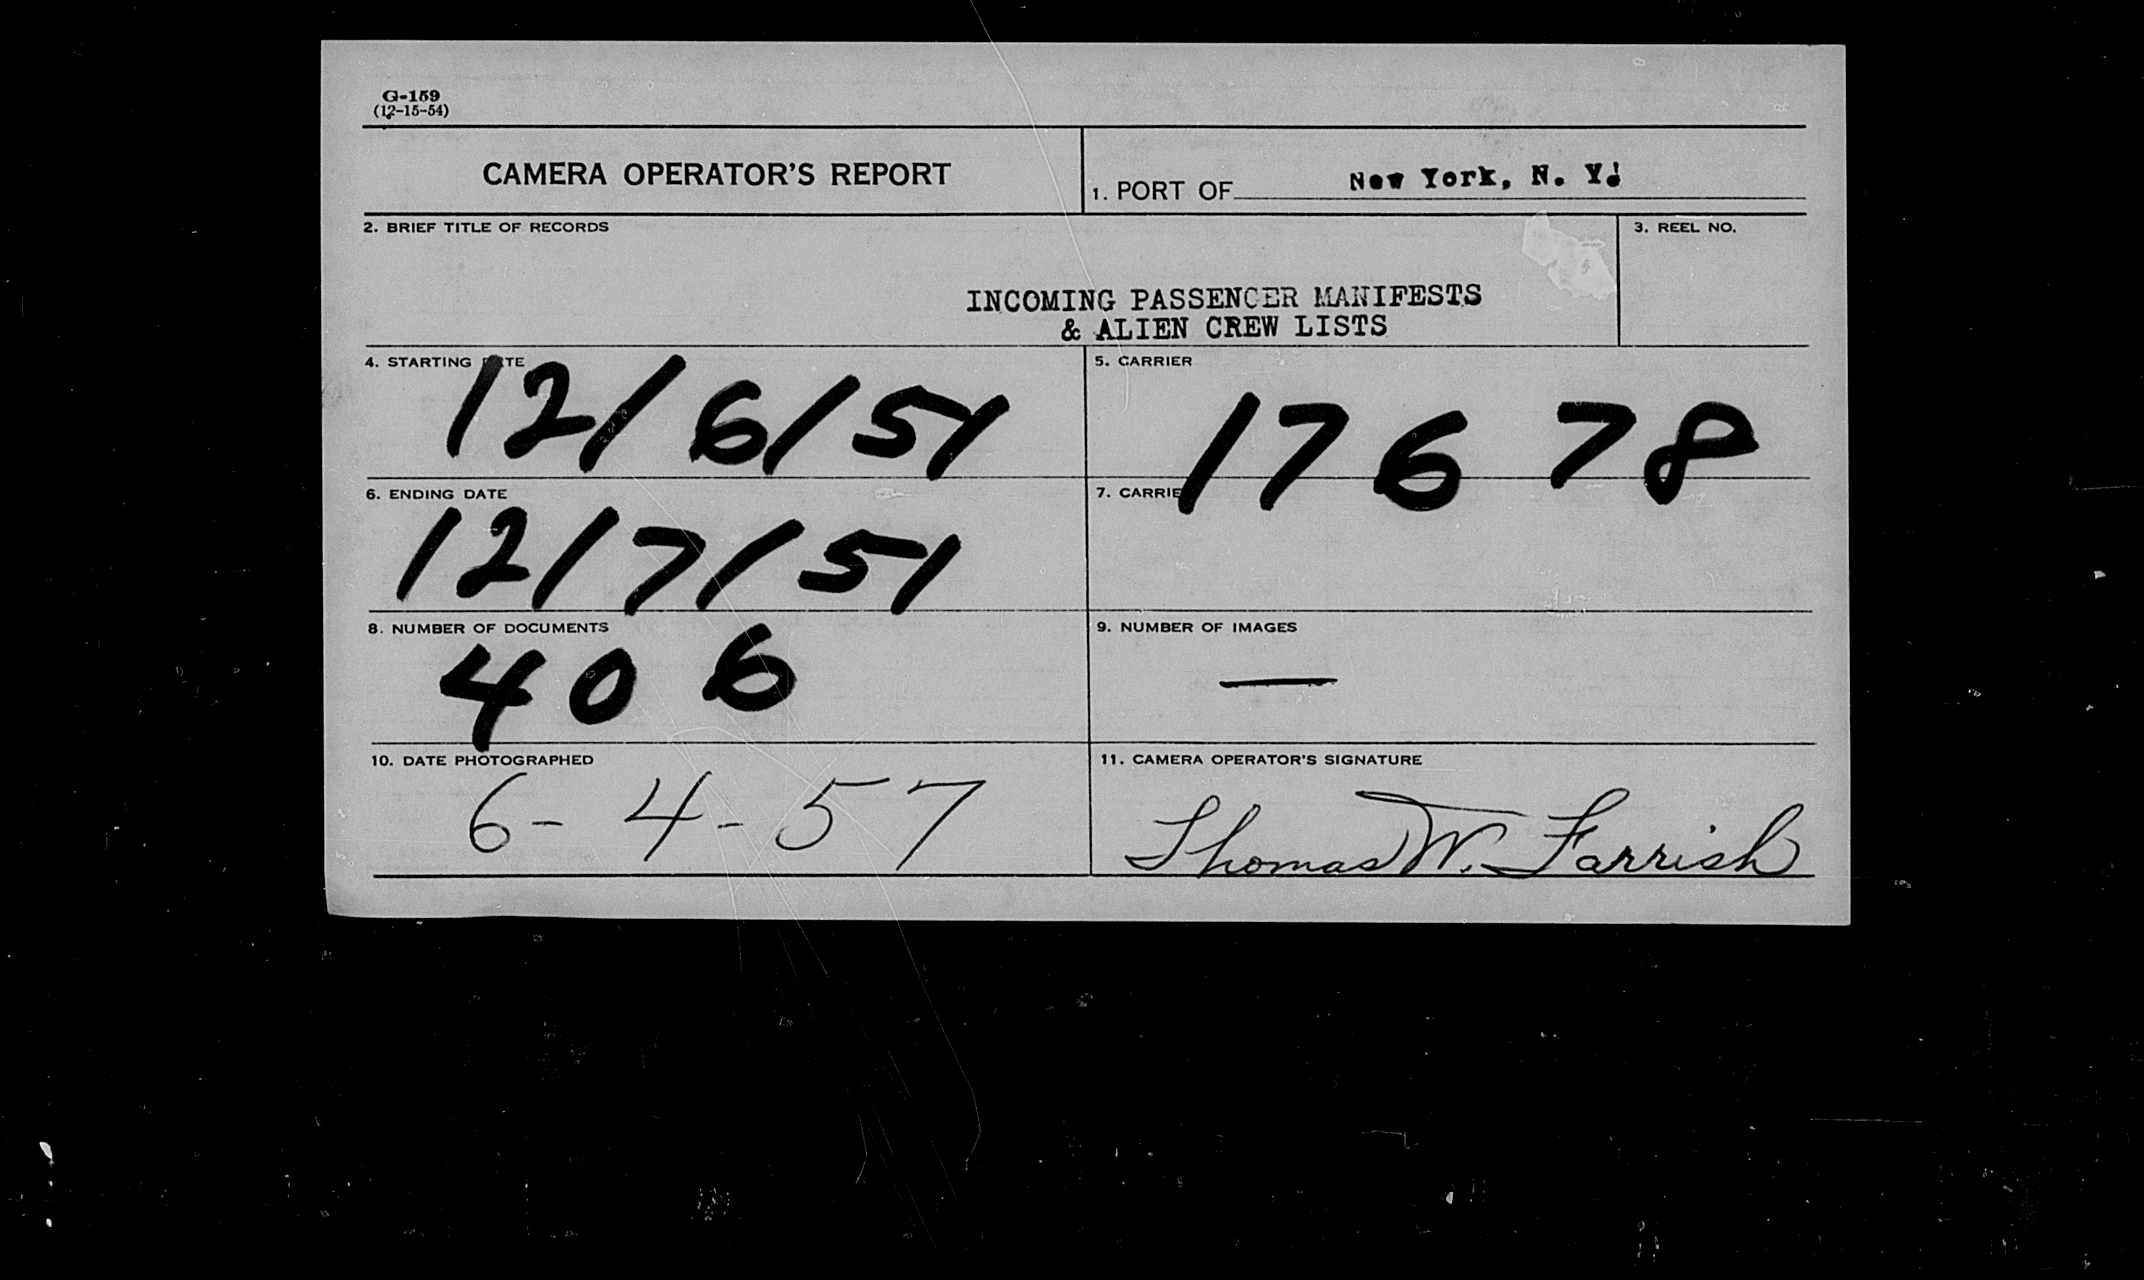 G-159
(12-15-54)
CAMERA OPERATOR'S REPORT
1. PORT OF New York, N. Y.
2. BRIEF TITLE OF RECORDS
3. REEL NO.
INCOMING PASSENGER MANIFESTS
& ALIEN CREW LISTS
4. STARTING DATE
12/6/51
5. CARRIER
17678
6. ENDING DATE
12/7/51
7. CARRIER
8. NUMBER OF DOCUMENTS
406
9. NUMBER OF IMAGES
—
10. DATE PHOTOGRAPHED
6-4-57
11. CAMERA OPERATOR'S SIGNATURE
Thomas W. Farrish